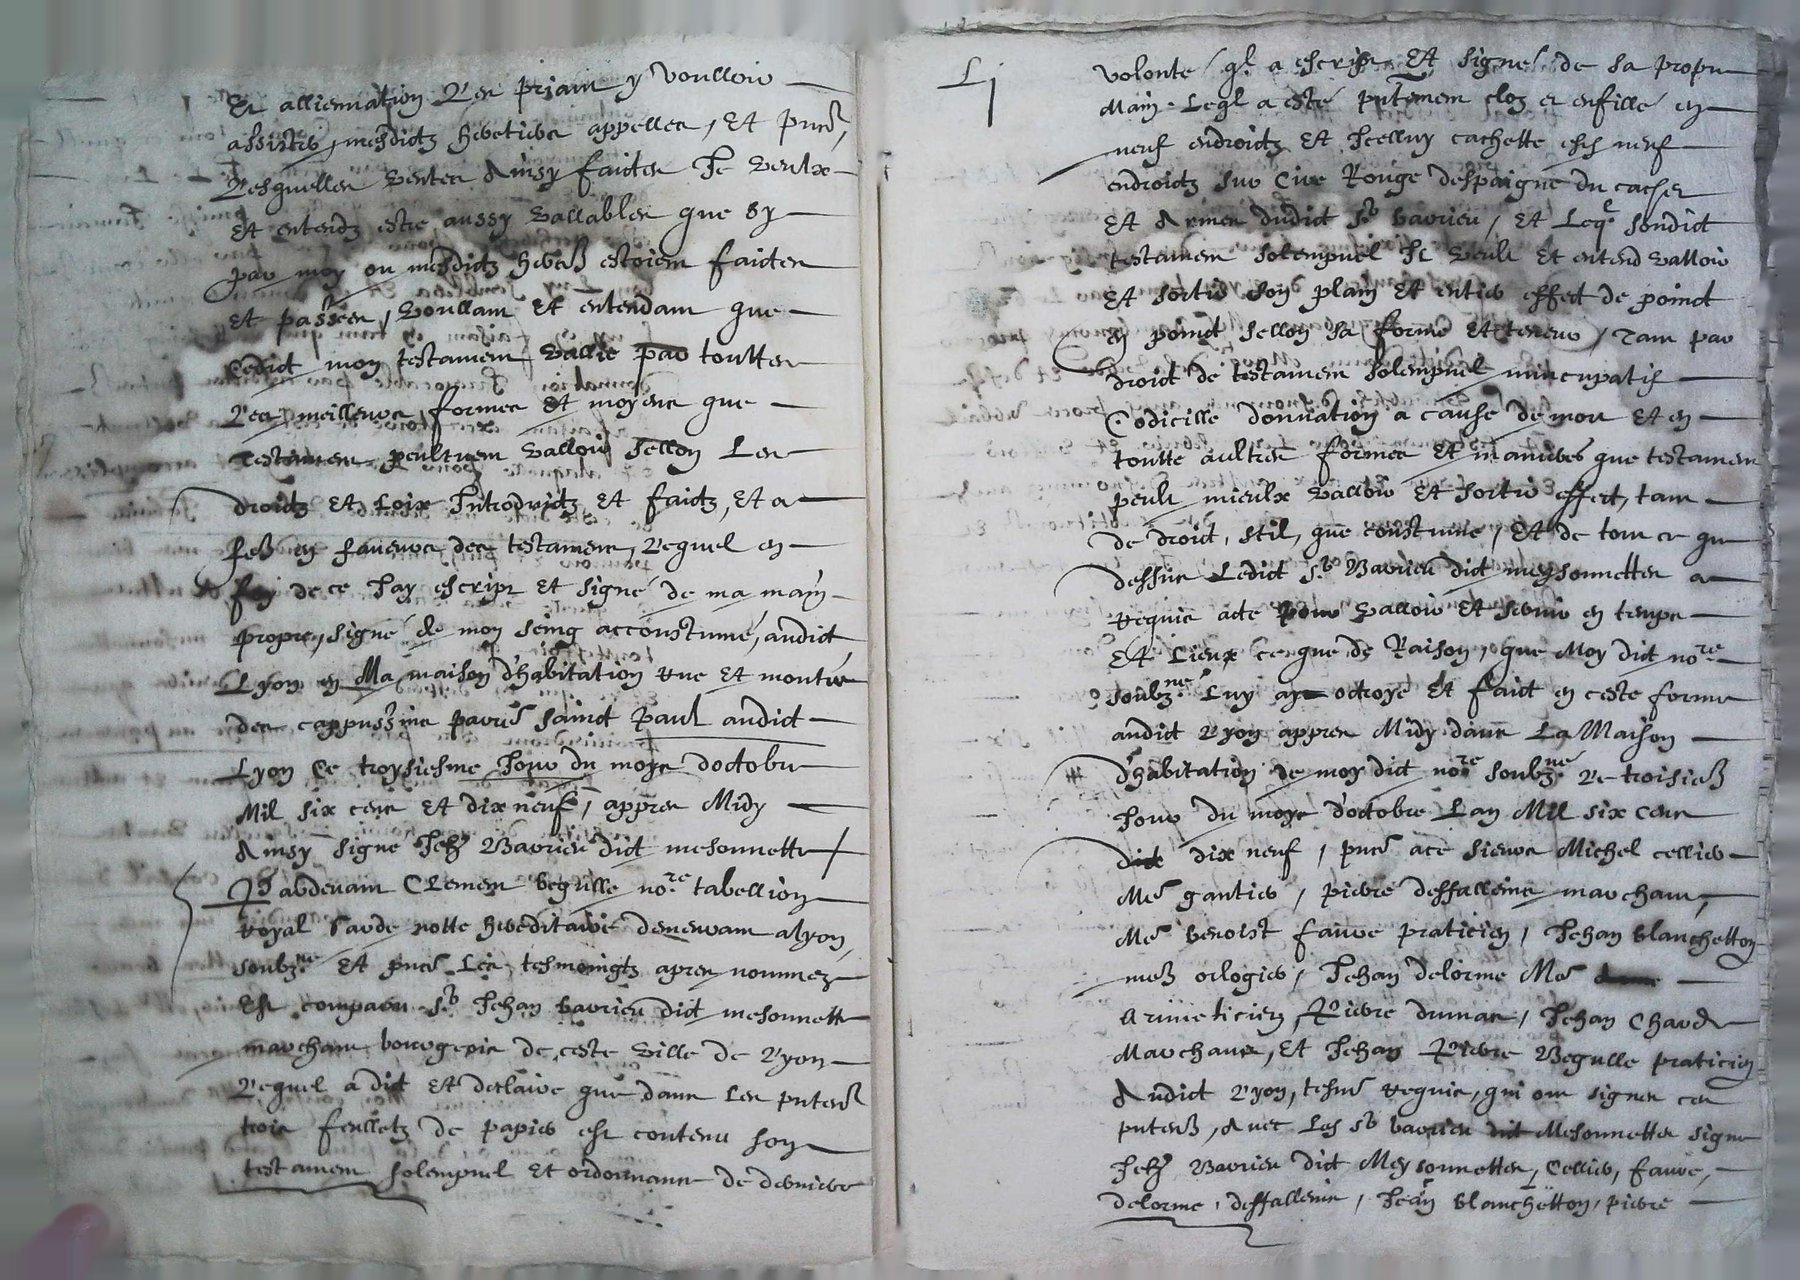 Et allienation Les priant y voulloir
assister mesdictz heretiers appelles, Et pntz,
Lesquelles ventes Ainsy faictes Je veulx
Et entendz estre aussy vallables que sy
par moy ou mesdictz herers estoient faictes
Et passées, Voullant Et entendant que
Cedict mon testament vallie par touttes
Les meilleures formes Et moyens que
testament peultvent valloir sellon Les
droictz Et Loix Introduictz Et faictz, Et a
en faveurs des testamens, Lequel en
foy de ce Jay escript Et signé de ma main
propre, signé de mon seing accoustumé, audict
Lyon en Ma maison d'habitation rue Et montée
des cappussins parroisse sainct Paul audict
Lyon Ce troysiesme Jour du moys doctobre
Mil six cens Et dix neuf, appres Midy
Ainsy signé Jehan Barrieu dict mesonnette
Pardevant Clement begulle nore tabellion
Royal Garde notte hereditaire demeurant a lyon,
soubzne Et pntz Les tesmoingtz apres nommez
Est comparu sr Jehan barrieu dict mesonnette
marchant bourgeois de ceste ville de Lyon
Lequel a dict Et desclaire que dans Les pntes
trois feulletz de papier est contenu son
testament solempnel Et ordonnance de derniere
Lj
volonté ql a escript Et signé de sa propre
Main. Leql a esté pntement cloz et enfillé en
neuf endroictz Et Icelluy cachetté esd neuf
endroictz sur Cire Rouge despaigne du cachet
Et Armes dudict sr barrieu, Et Leql sondict
testament solempnel Il veult Et entend valloir
Et sortir son plain Et entier effect de poinct
en poinct sellon sa forme Et teneur, tant par
droict de testament solempnel nuncupatif
Codicille donnation a cause de mort Et en
toutte aultres formes Et manieres que testament
peult mieulx valloir Et sortir effect, tant
de droict, stil, que coustume, Et de tout ce que
dessus Ledict sr Barrieu dict meysonnettes a
requis acte pour valloir Et servir en temps
Et Lieux ce que de Raison, que Moy dict nore
soubzne Luy ay octroyé Et faict en ceste forme
audict Lyon appres Midy dans La Maison
d'habitation de moy dict nore soubzne Le troisies
Jour du moys d'octobre Lan Mil six cens
dict dix neuf, pntz ace sieurs Michel cellier
Me gantier, pierre deffalleine marchant,
Me benoist faure praticien, Jehan blanchetton
me orlogier, Jehan delorme Me
Arimeticien, Pierre dumas, Jehan Chard
Marchans, Et Jehan Pierre Begulle praticien
Audict Lyon, tesmz requis, qui ont signés ces
pntes, avec Les sr barrieu dict Mesonnettes signe
Jehan Barrieu dict Meysonnettes, Cellier, faure,
delorme, deffalleine, Jean blanchetton, pierre